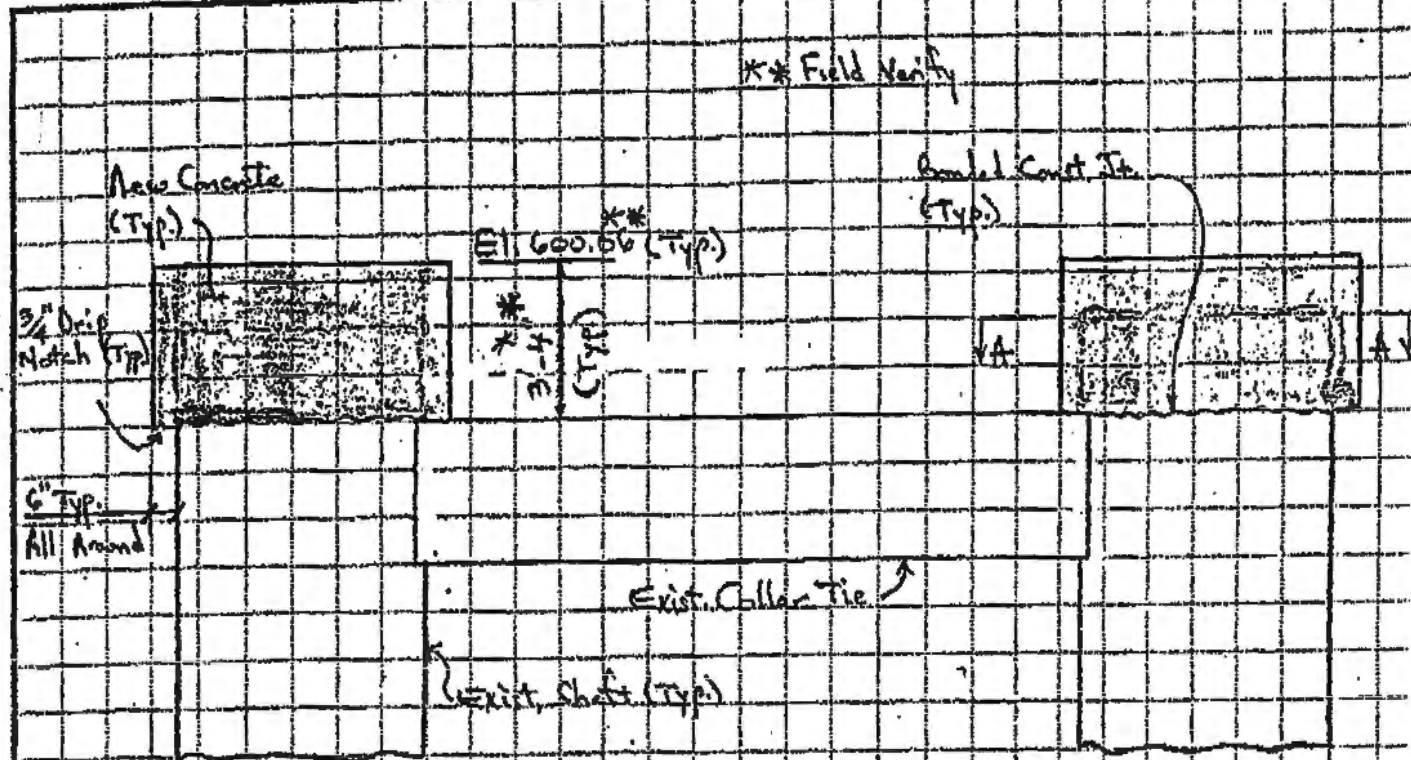 ** Field Verify
New Concrete
(Typ.)
Bonded Const. Jt.
(Typ.)
**
El. 600.06 (Typ.)
3/4" Drip
Notch (Typ.)
**
3'-4
(Typ)
A
A
6" Typ.
All Around
Exist. Collar Tie
Exist. Shaft (Typ.)